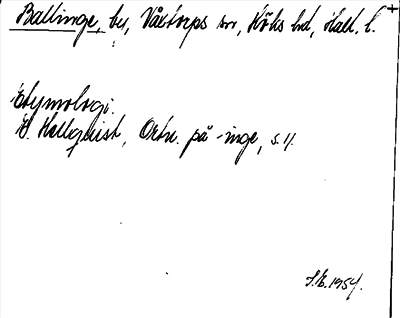 Ballinge, by, Våxtorps sn, Höks hd, Hall. l. +
Etymologi.
E. Hellquist, Ortn. på -inge, s. 11.
S.E. 1954.